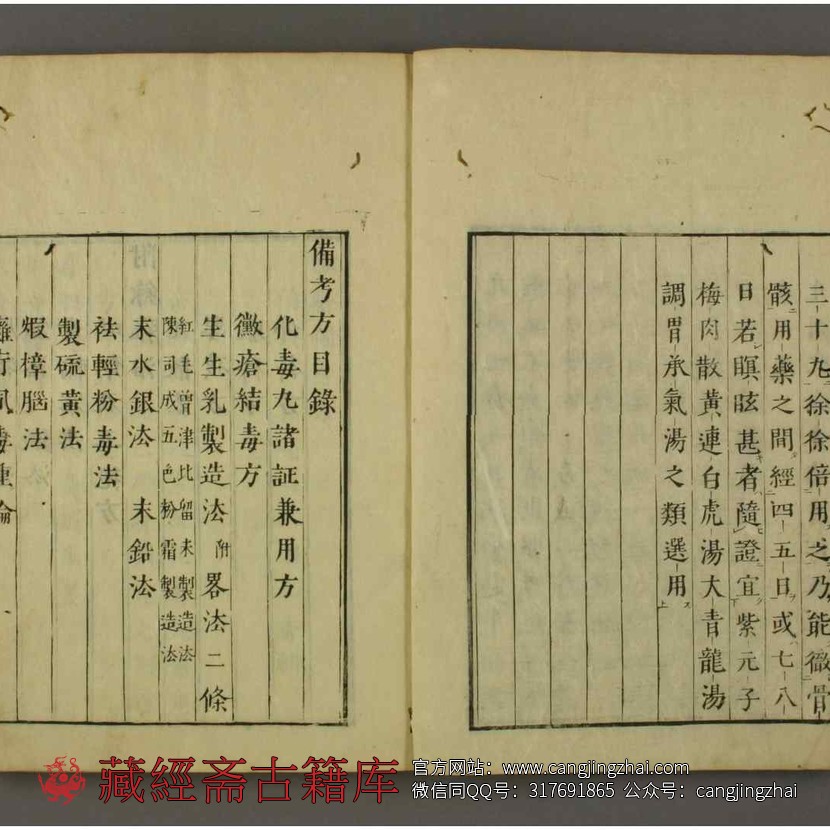 三十九徐徐倍用之乃能徹骨
骸用藥之間經四五日或七八
日若瞑眩甚者隨證宜紫元子
梅肉散黃連白虎湯大青龍湯
調胃承氣湯之類選用
備考方目錄
化毒丸諸証兼用方
黴瘡結毒方
生生乳製造法附畧法二條
紅毛曾津比留末製造法
陳司成五色粉霜製造法
末水銀法 末鉛法
袪輕粉毒法
製硫黃法
煅樟腦法
藏經斋古籍库
官方网站：www.cangjingzhai.com
微信同QQ号：317691865 公众号：cangjingzhai